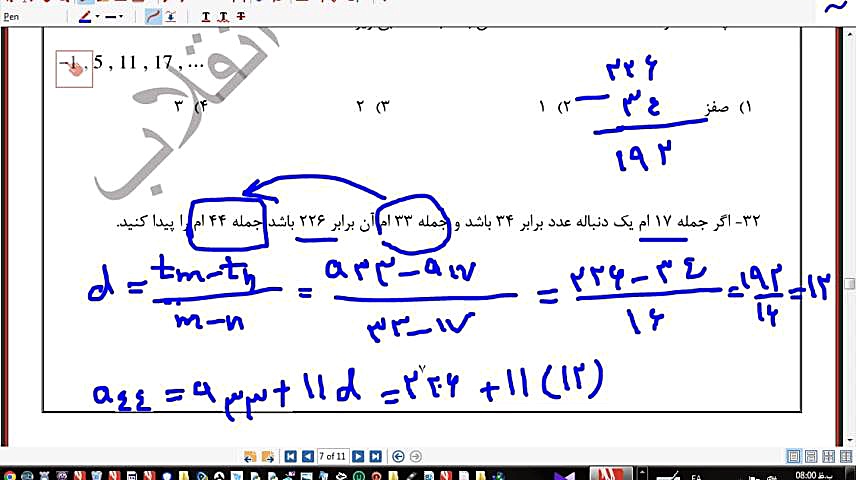 Pen
-1 , 5 , 11 , 17 , ...
۲۲۶
− ۳٤
۱۹۲
۱) صفر ۲) ۱ ۳) ۲ ۴) ۳
انقلاب
۳۲- اگر جمله ۱۷ ام یک دنباله عدد برابر ۳۴ باشد و جمله ۳۳ ام آن برابر ۲۲۶ باشد جمله ۴۴ ام را پیدا کنید.
d = (tm − tn) / (m − n) = (a۳۳ − a۱۷) / (۳۳ − ۱۷) = (۲۲۶ − ۳٤) / ۱۶ = ۱۹۲ / ۱۶ = ۱۲
a٤٤ = a۳۳ + ۱۱d = ۲۲۶ + ۱۱(۱۲)
7 of 11
FA 08:00 ب.ظ